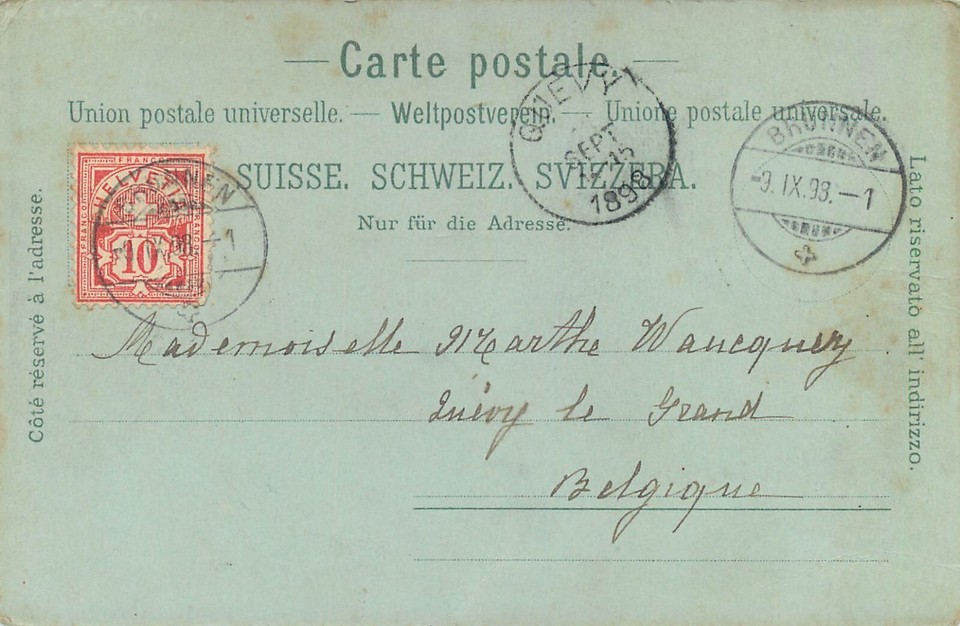 Carte postale.
Union postale universelle. — Weltpostverein. — Unione postale universale.
SUISSE. SCHWEIZ. SVIZZERA.
Nur für die Adresse.
Côté réservé à l'adresse.
Lato riservato all'indirizzo.
FRANCO
HELVETIA
10
QUÉVY
SEPT
1898
BRUNNEN
-9.IX.98.-1
Mademoiselle Marthe Waucquez
Quévy le Grand
Belgique